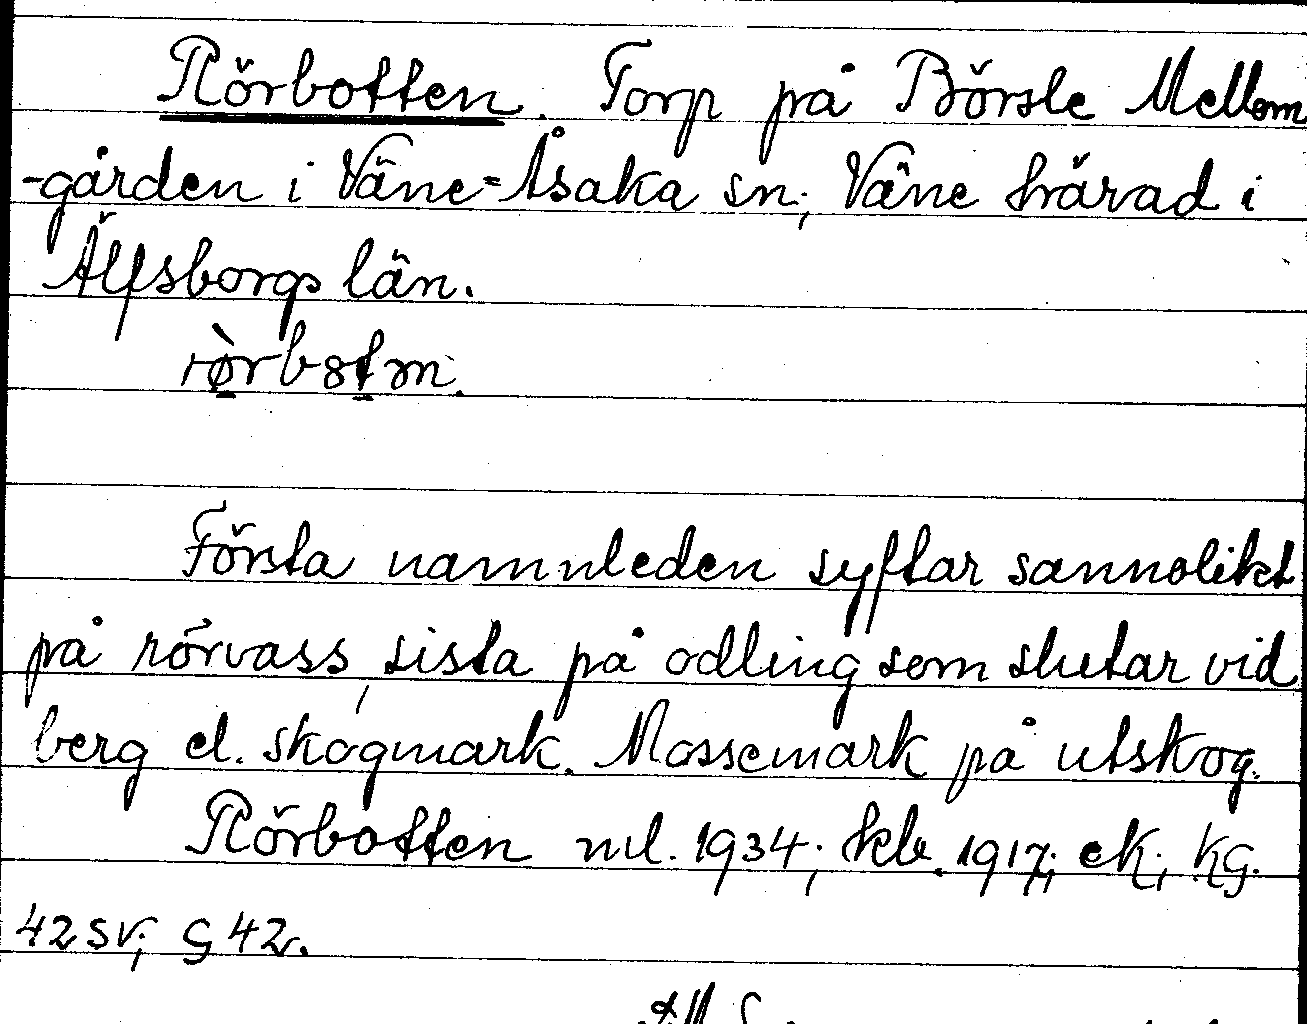 Rörbotten. Torp på Börsle Mellom
-gården i Väne-Åsaka sn, Väne härad i
Älfsborgs län.
rø̀rbɔtn.
Första namnleden syftar sannolikt
på rörvass, sista på odling som slutar vid
berg el. skogmark. Mossemark på utskog.
Rörbotten ml. 1934; kb. 1917; eK; KG.
42 sv; G 42.